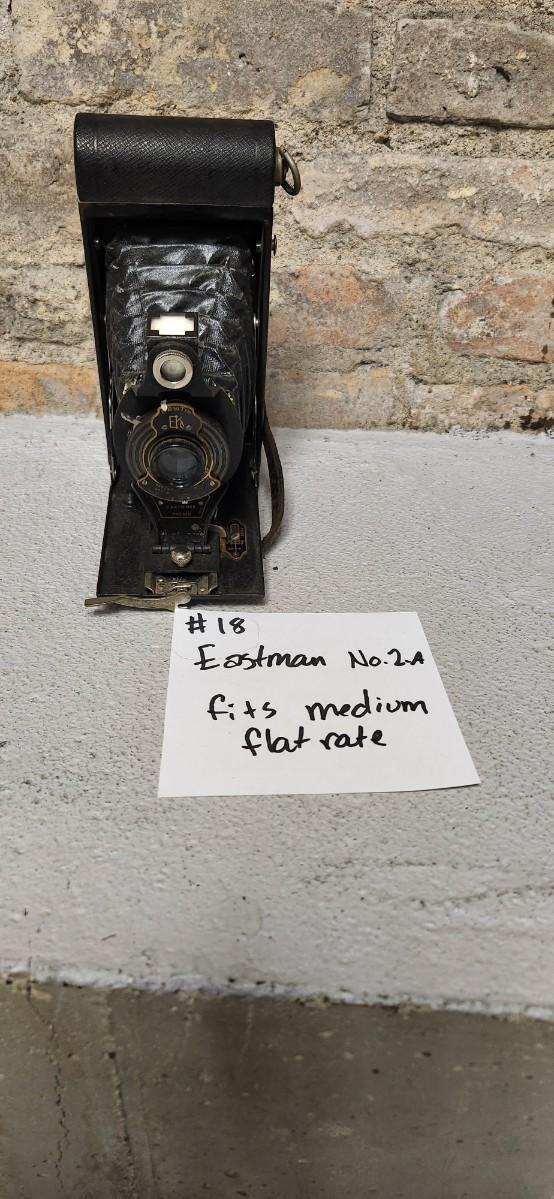 EK
#18
Eastman No. 2A
fits medium
flat rate